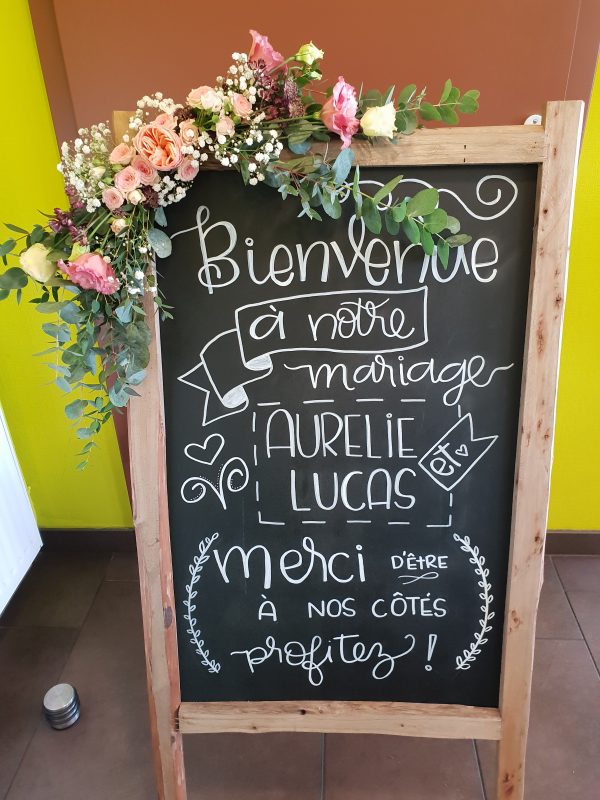 Bienvenue
à notre
mariage
AURELIE et
LUCAS
merci D'ÊTRE
À NOS CÔTÉS
profitez !